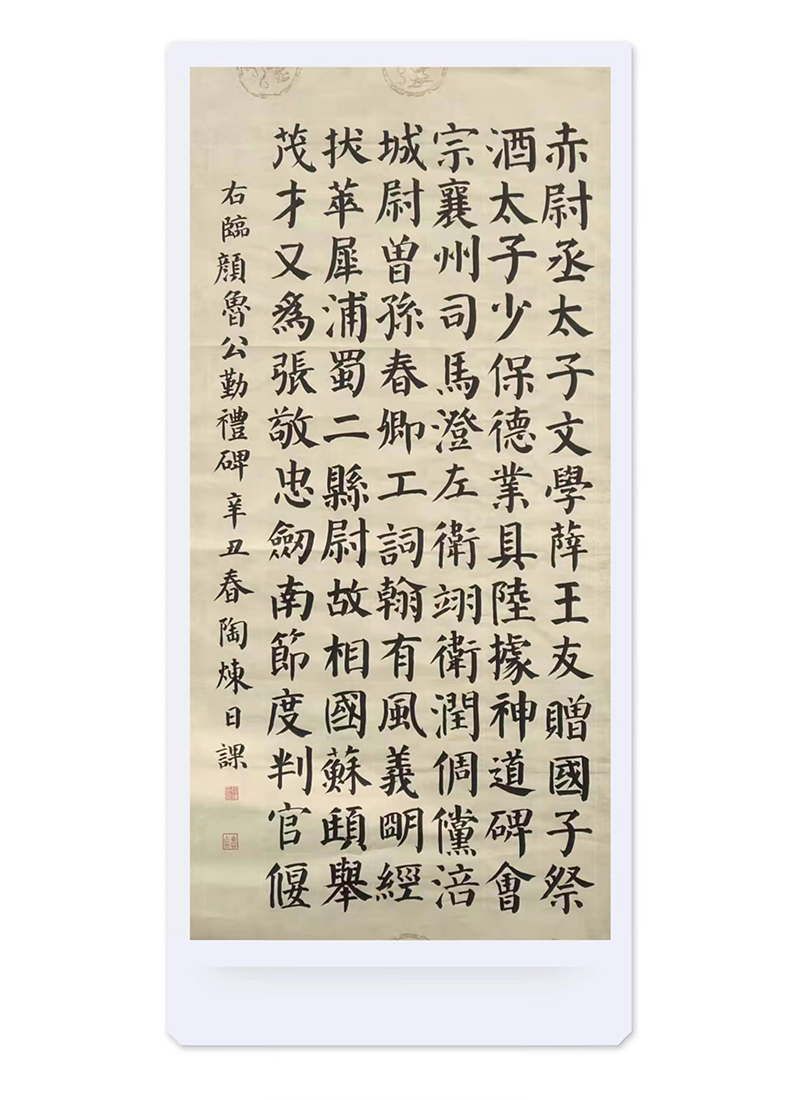 赤尉丞太子文學薛王友贈國子祭
酒太子少保德業具陸據神道碑會
宗襄州司馬澄左衛翊衛潤倜儻涪
城尉曾孫春卿工詞翰有風義明經
拔萃犀浦蜀二縣尉故相國蘇頲舉
茂才又為張敬忠劒南節度判官偃
右臨顏魯公勤禮碑辛丑春陶煉日課